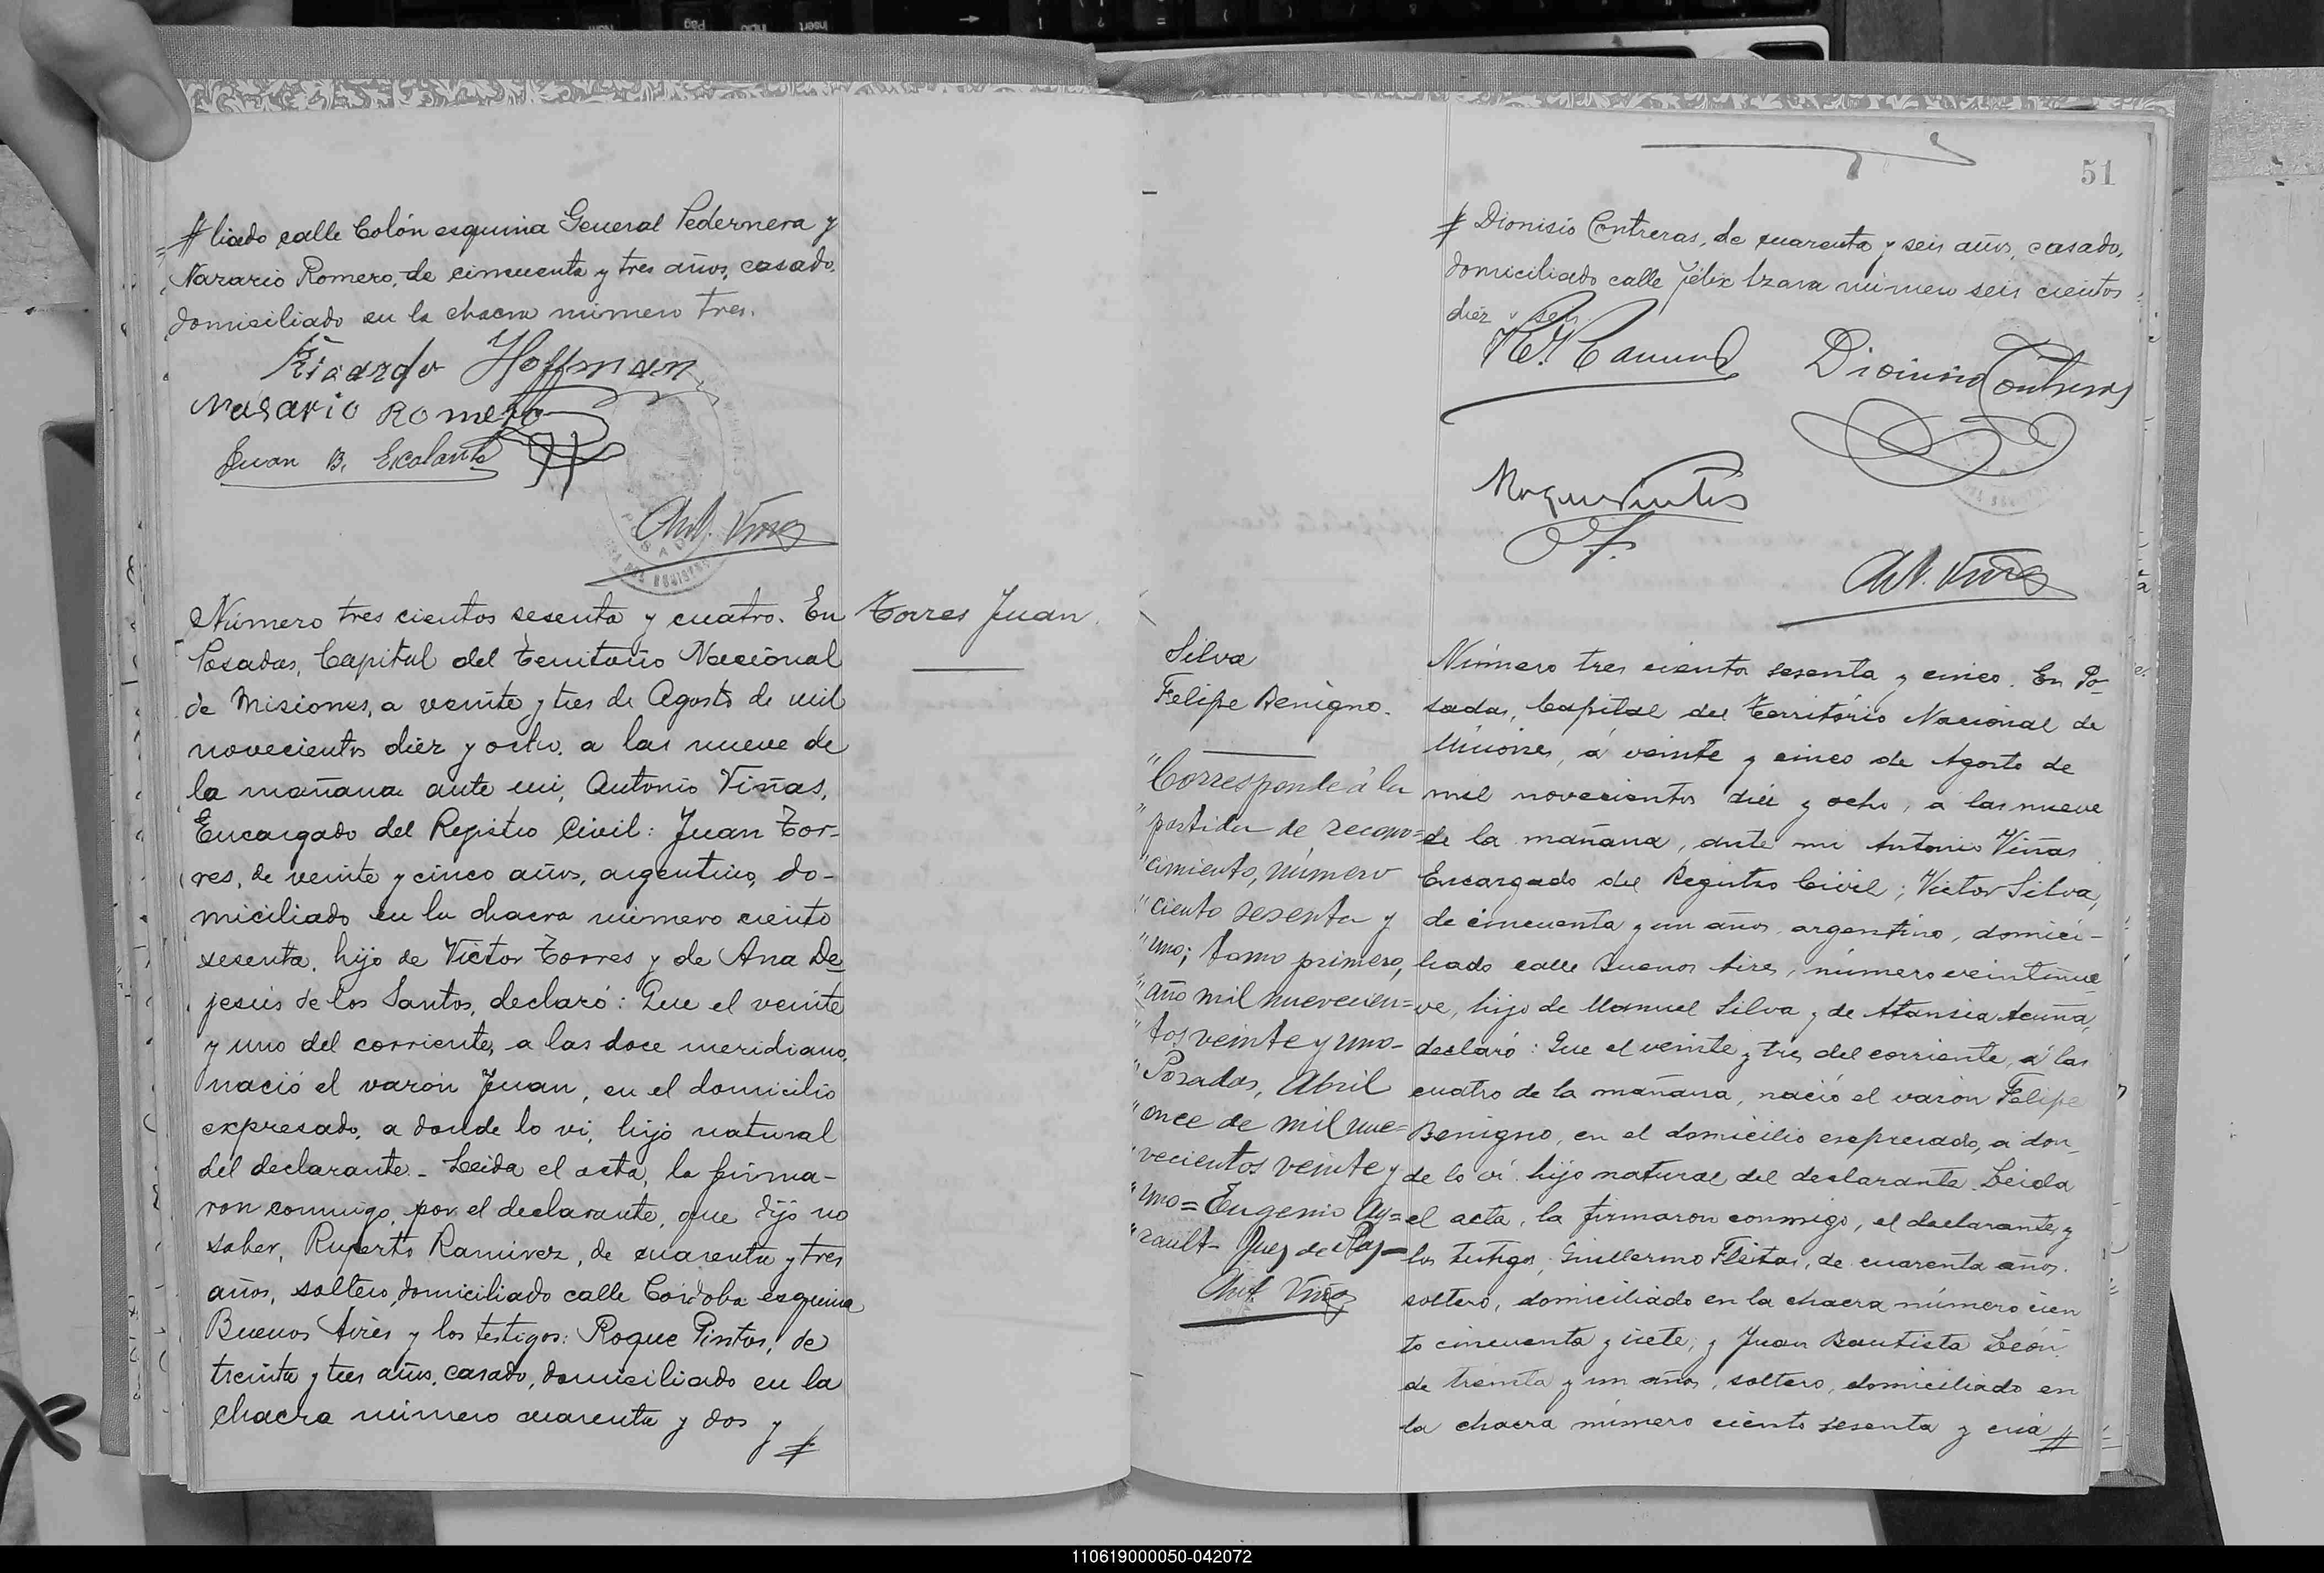 # liado calle Colón esquina General Pedernera y
Narario Romero, de cincuenta y tres años, casado,
domiciliado en la chacra número tres.
Ricardo Hoffman
Nasario Romero
Juan B. Escalante
Ant. Viñas
Número tres cientos sesenta y cuatro. En
Posadas, Capital del Territorio Nacional
de Misiones, a veinte y tres de Agosto de mil
novecientos diez y ocho, a las nueve de
la mañana ante mi, Antonio Viñas,
Encargado del Registro Civil: Juan Tor-
res, de veinte y cinco años, argentino, do-
miciliado en la chacra número ciento
sesenta, hijo de Victor Torres y de Ana De
jesús de los Santos, declaró: Que el veinte
y uno del corriente, a las doce meridiano,
nació el varón Juan, en el domicilio
expresado, a donde lo vi, hijo natural
del declarante. Leida el acta, la firma-
ron conmigo, por el declarante, que dijo no
saber, Ruperto Ramirez, de cuarenta y tres
años, soltero, domiciliado calle Córdoba esquina
Buenos Aires y los testigos: Roque Pintos, de
treinta y tres años, casado, domiciliado en la
chacra número cuarenta y dos y #
Torres Juan
51
# Dionisio Contreras, de cuarenta y seis años, casado,
domiciliado calle Félix Azara número seis cientos
diez y seis.
Dionisio Contreras
Roque Pintos
Ant. Viñas
Silva
Felipe Benigno.
"Corresponde á la
"partida de recono=
"cimiento, número
"ciento sesenta y
"uno; tomo primero,
"año mil nuevecien=
"tos veinte y uno-
"Posadas, Abril
"once de mil nue=
"vecientos veinte y
"uno= Eugenio Ay=
"rault- Juez de Paz=
Ant. Viñas
Número tres ciento sesenta y cinco. En Po-
sadas, Capital del Territorio Nacional de
Misiones, á veinte y cinco de Agosto de
mil novecientos diez y ocho, a las nueve
de la mañana, ante mi Antonio Viñas
Encargado del Registro Civil; Victor Silva,
de cincuenta y un años, argentino, domici-
liado calle Buenos Aires, número veintinue
ve, hijo de Manuel Silva y de Atansia Acuña,
declaró: Que el veinte y tres del corriente, á las
cuatro de la mañana, nació el varón Felipe
Benigno, en el domicilio expresado, a don-
de lo ví, hijo natural del declarante. Leida
el acta, la firmaron conmigo, el declarante, y
los testigos, Guillermo Fleitas, de cuarenta años,
soltero, domiciliado en la chacra número cien
to cincuenta y siete; y Juan Bautista León,
de treinta y un años, soltero, domiciliado en
la chacra número ciento sesenta y cua #
110619000050-042072